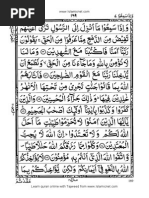 www.islamicnet.com
وَإِذَا سَمِعُوا ٧
١٦٩
وَإِذَا سَمِعُوا مَا أُنْزِلَ إِلَى الرَّسُولِ تَرَى أَعْيُنَهُمْ
تَفِيضُ مِنَ الدَّمْعِ مِمَّا عَرَفُوا مِنَ الْحَقِّ يَقُولُونَ
رَبَّنَا آمَنَّا فَاكْتُبْنَا مَعَ الشَّاهِدِينَ وَمَا لَنَا لَا نُؤْمِنُ
بِاللَّهِ وَمَا جَاءَنَا مِنَ الْحَقِّ وَنَطْمَعُ أَنْ يُدْخِلَنَا رَبُّنَا
مَعَ الْقَوْمِ الصَّالِحِينَ فَأَثَابَهُمُ اللَّهُ بِمَا قَالُوا جَنَّاتٍ
تَجْرِي مِنْ تَحْتِهَا الْأَنْهَارُ خَالِدِينَ فِيهَا وَذَٰلِكَ جَزَاءُ
الْمُحْسِنِينَ وَالَّذِينَ كَفَرُوا وَكَذَّبُوا بِآيَاتِنَا أُولَٰئِكَ
أَصْحَابُ الْجَحِيمِ يَا أَيُّهَا الَّذِينَ آمَنُوا لَا تُحَرِّمُوا طَيِّبَاتِ
مَا أَحَلَّ اللَّهُ لَكُمْ وَلَا تَعْتَدُوا إِنَّ اللَّهَ لَا يُحِبُّ
الْمُعْتَدِينَ وَكُلُوا مِمَّا رَزَقَكُمُ اللَّهُ حَلَالًا طَيِّبًا وَاتَّقُوا
اللَّهَ الَّذِي أَنْتُمْ بِهِ مُؤْمِنُونَ لَا يُؤَاخِذُكُمُ اللَّهُ
بِاللَّغْوِ فِي أَيْمَانِكُمْ وَلَٰكِنْ يُؤَاخِذُكُمْ بِمَا
Learn quran online with Tajweed from www.islamicnet.com